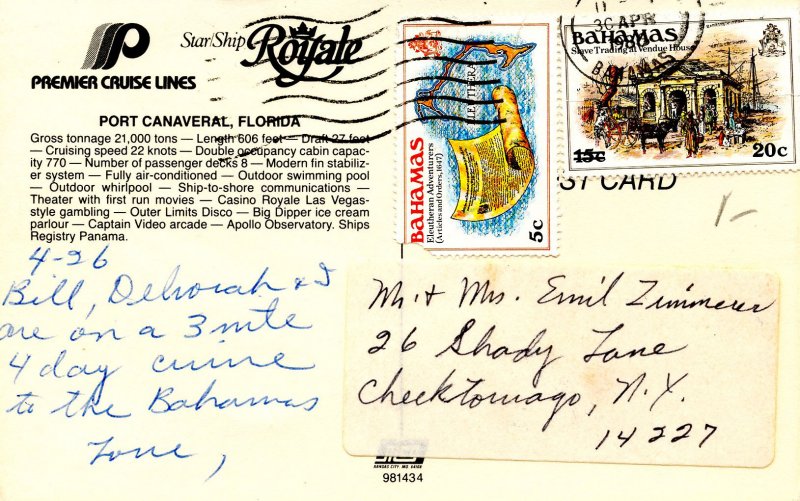 PREMIER CRUISE LINES
Star/Ship Royale
PORT CANAVERAL, FLORIDA
Gross tonnage 21,000 tons — Length 606 feet — Draft 27 feet
— Cruising speed 22 knots — Double occupancy cabin capac-
ity 770 — Number of passenger decks 8 — Modern fin stabiliz-
er system — Fully air-conditioned — Outdoor swimming pool
— Outdoor whirlpool — Ship-to-shore communications —
Theater with first run movies — Casino Royale Las Vegas-
style gambling — Outer Limits Disco — Big Dipper ice cream
parlour — Captain Video arcade — Apollo Observatory. Ships
Registry Panama.
4-26
Bill, Deborah & I
are on a 3 nite
4 day cruise
to the Bahamas
Love,
BAHAMAS
Eleutheran Adventurers
(Articles and Orders, 1647)
ELEUTHERA
5c
30 APR
BAHAMAS
BAHAMAS
Slave Trading at Vendue House
15c
20c
ST CARD
1-
Mr. + Mrs. Emil Zimmerer
26 Shady Lane
Checktowago, N.Y.
14227
KANSAS CITY, MO. 64108
981434